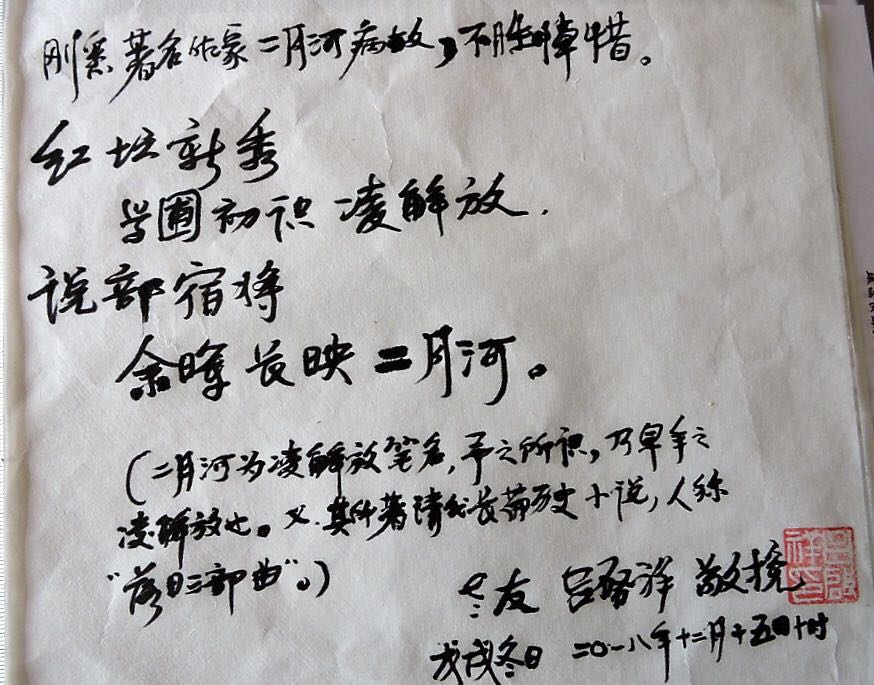 刚悉著名作家二月河病故,不胜悼惜。
红坛新秀
学圃初识凌解放.
说部宿将
余晖长映二月河。
(二月河为凌解放笔名,予之所识,乃早年之
凌解放也。又.其所著清代长篇历史小说,人称
“落日三部曲”。)
老友 吕启祥 敬挽
戊戌冬日 二〇一八年十二月十五日十时